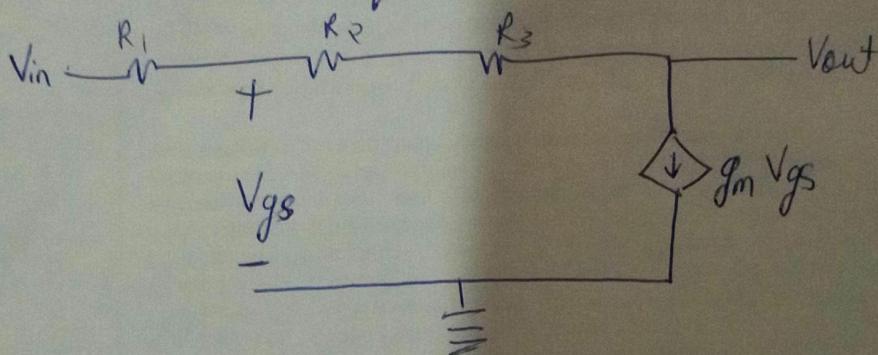 Vin R1 R2 R3 Vout
+
Vgs
-
gm Vgs